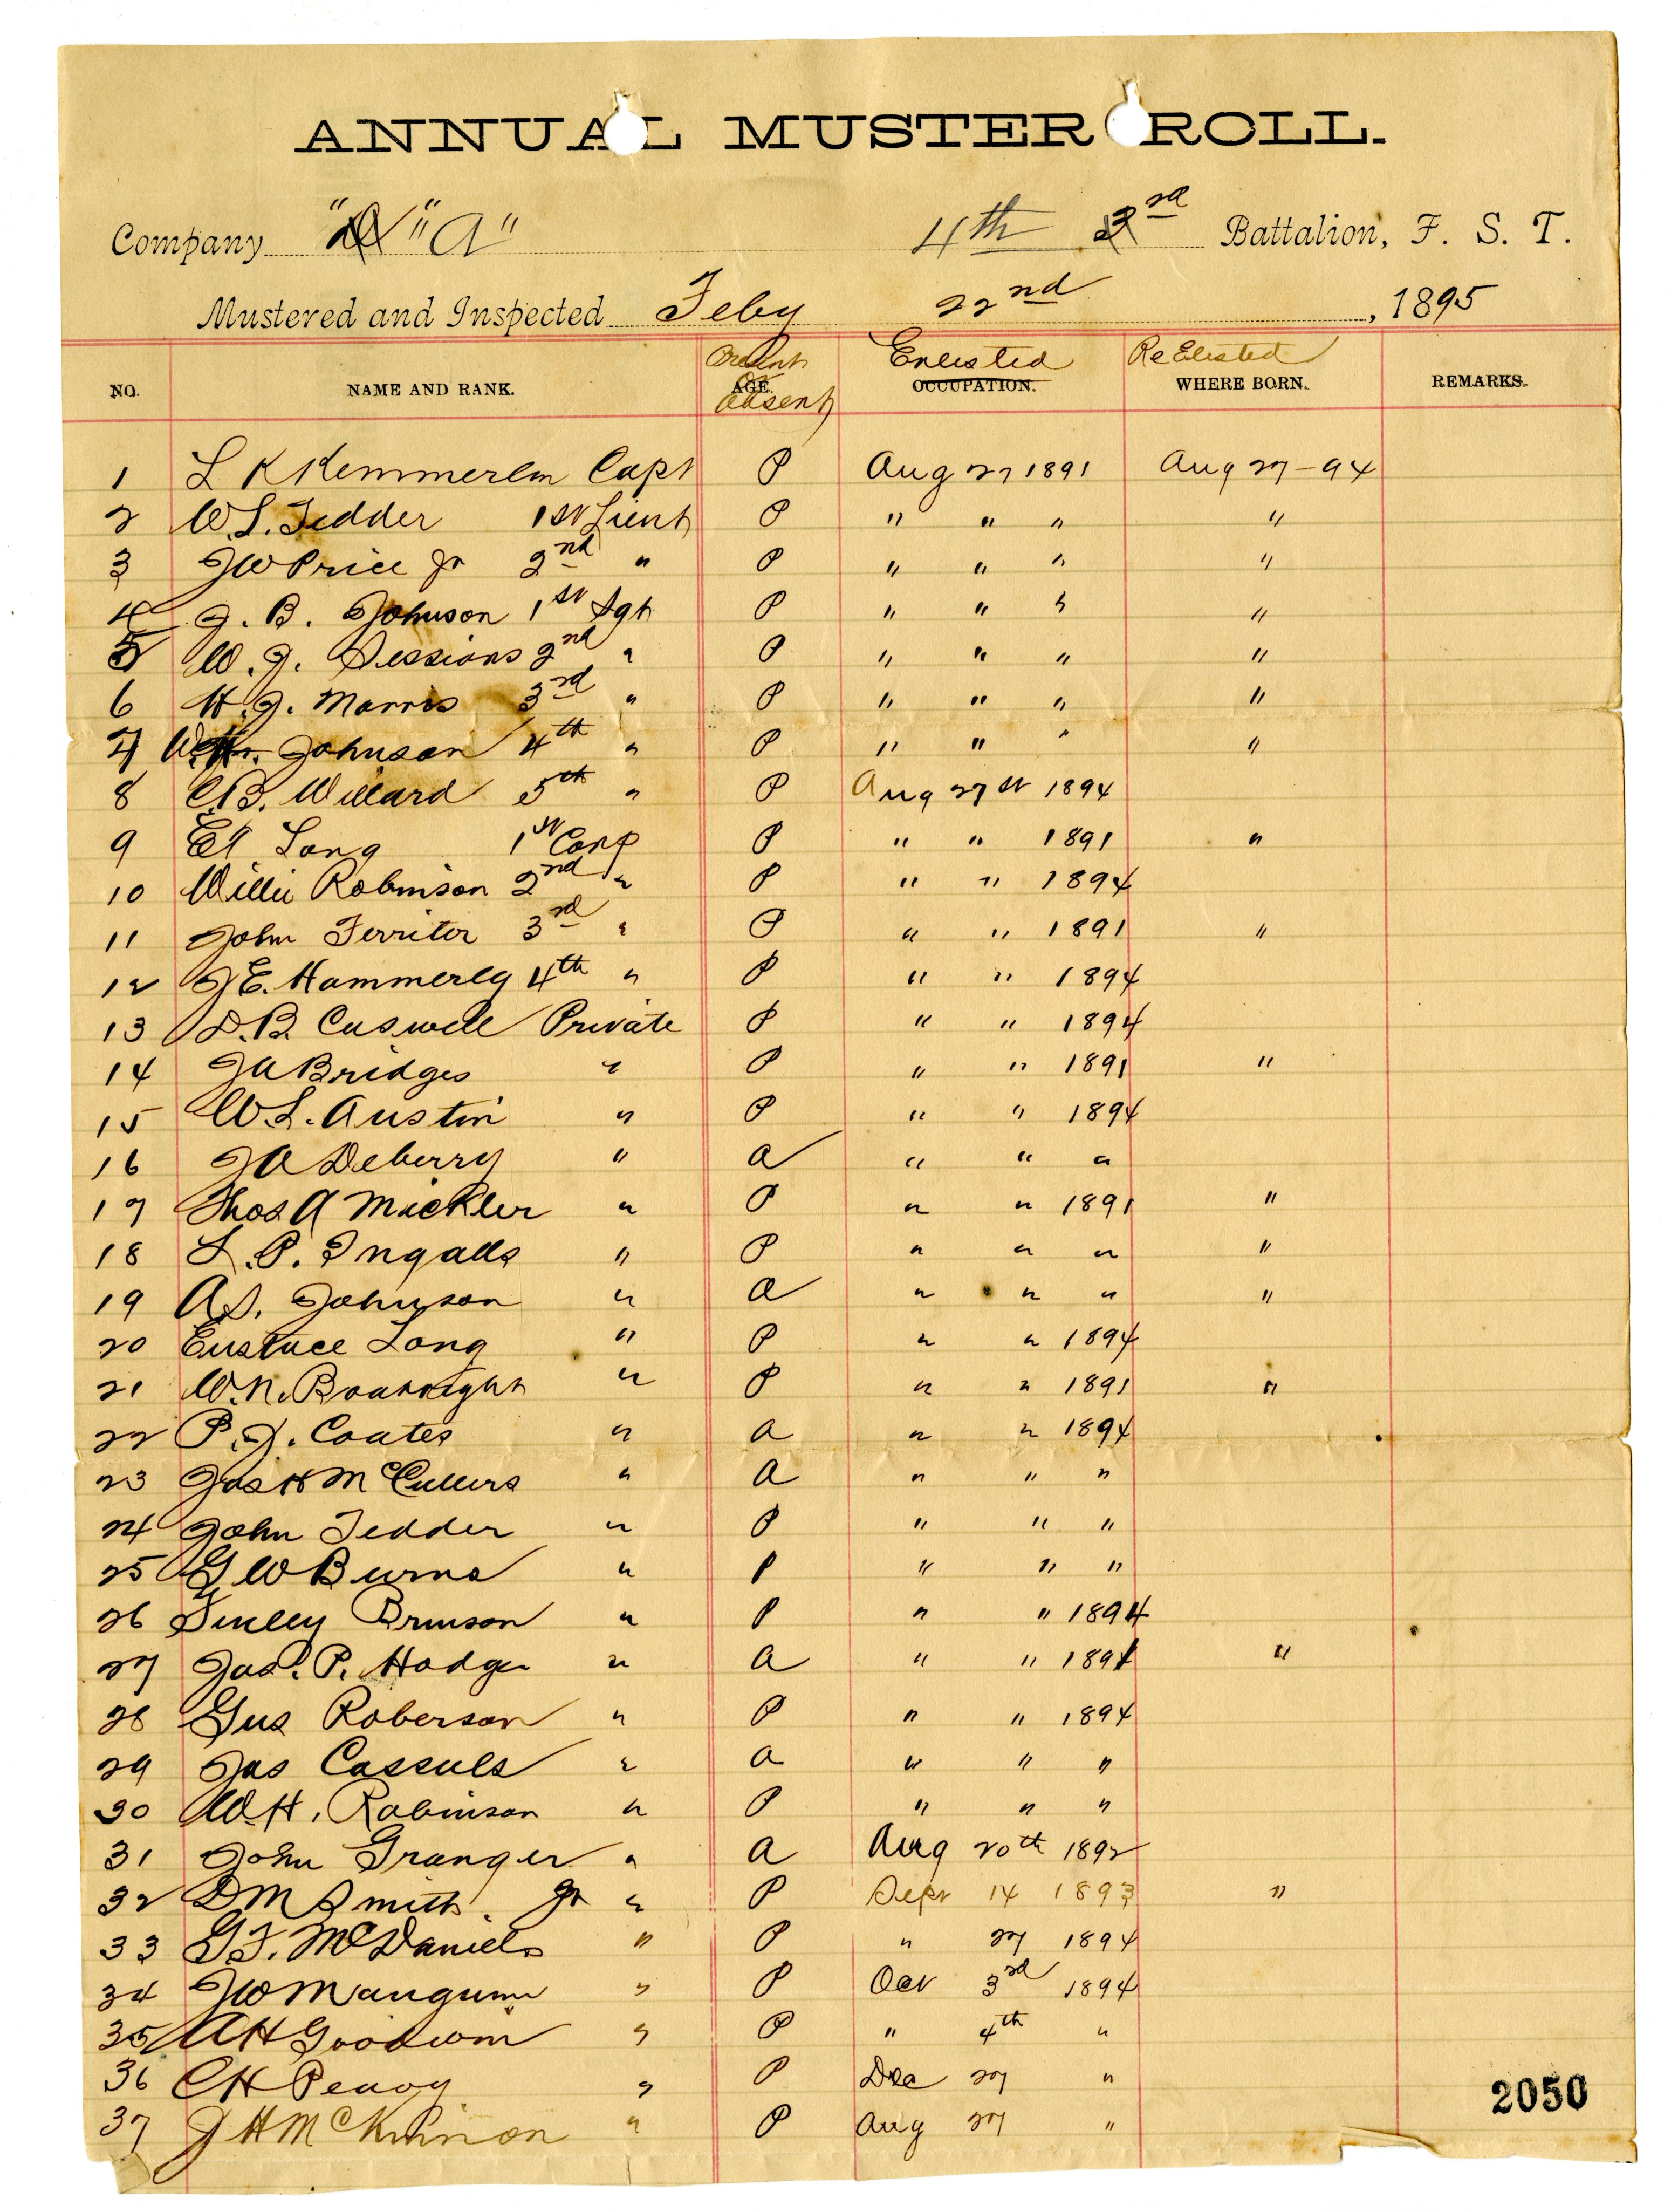 ANNUAL MUSTER ROLL.
Company "A" 4th 3rd Battalion, F. S. T.
Mustered and Inspected Feby 22nd, 1895
NO. NAME AND RANK. AGE. Present or Absent OCCUPATION. Enlisted WHERE BORN. ReElisted REMARKS.
1 L K Kemmerlin Capt P Aug 27 1891 Aug 27-94
2 W.S. Tedder 1st Lieut P " " " "
3 JW Price Jr 2nd " P " " " "
4 J. B. Johnson 1st Sgt P " " " "
5 W. J. Sessions 2nd " P " " " "
6 H. J. Morris 3rd " P " " " "
7 W. Johnson 4th " P " " " "
8 C.B. Willard 5th " P Aug 27st 1894
9 EA Long 1st Corp P " " 1891 "
10 Willie Robinson 2nd " P " " 1894
11 John Ferriter 3rd " P " " 1891 "
12 JE. Hammerly 4th " P " " 1894
13 D.B. Caswell Private P " " 1894
14 JA Bridges " P " " 1891 "
15 W.L. Austin " P " " 1894
16 JA Deberry " a " " "
17 Thos A Mickler " P " " 1891 "
18 L. P. Ingalls " P " " " "
19 A.S. Johnson " a " " " "
20 Eustace Long " P " " 1894
21 W.N. Boatright " P " " 1891 "
22 P. J. Coates " a " " 1894
23 Jas H McCullers " a " " "
24 John Tedder " P " " "
25 G W Burns " P " " "
26 Finley Brinson " P " " 1894
27 Jas. P. Hodge " a " " 1891 "
28 Gus Roberson " P " " 1894
29 Jas Cassels " a " " "
30 W.H. Robinson " P " " "
31 John Granger " a Aug 20th 1892
32 DM Smith. Jr " P Sept 14 1893 "
33 G.F. McDaniels " P " 27 1894
34 JW Mangum " P Oct 3rd 1894
35 AH Goodwin " P " 4th "
36 CH Peavy " P Dec 27 "
37 J H McKinnon " P Aug 27 "
2050